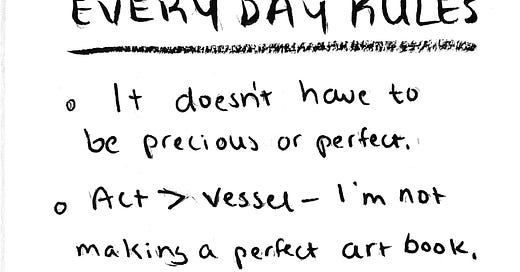 EVERY DAY RULES
o It doesn't have to
be precious or perfect.
o Act > Vessel – I'm not
making a perfect art book.